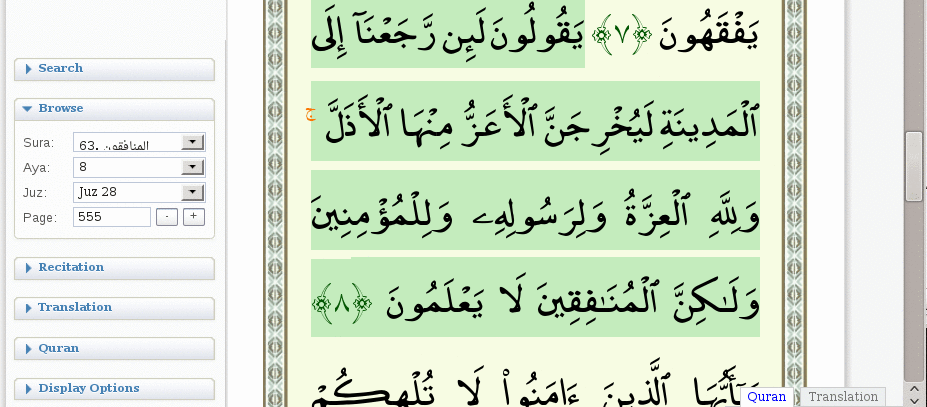 Search
Browse
Sura: 63. المنافقون
Aya: 8
Juz: Juz 28
Page: 555 - +
Recitation
Translation
Quran
Display Options
يَفْقَهُونَ ﴿٧﴾ يَقُولُونَ لَئِن رَّجَعْنَآ إِلَى
ٱلْمَدِينَةِ لَيُخْرِجَنَّ ٱلْأَعَزُّ مِنْهَا ٱلْأَذَلَّ ۚ
وَلِلَّهِ ٱلْعِزَّةُ وَلِرَسُولِهِۦ وَلِلْمُؤْمِنِينَ
وَلَـٰكِنَّ ٱلْمُنَـٰفِقِينَ لَا يَعْلَمُونَ ﴿٨﴾
يَـٰٓأَيُّهَا ٱلَّذِينَ ءَامَنُوا۟ لَا تُلْهِكُمْ
Quran Translation